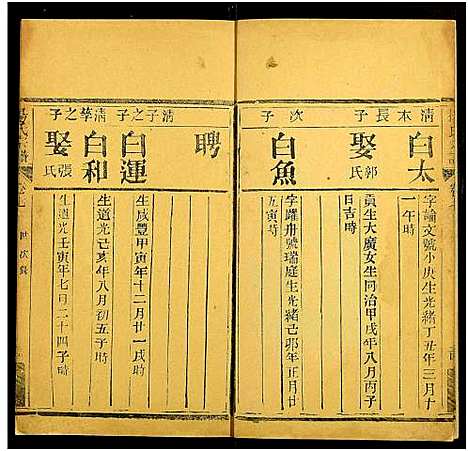 清本長子
白太
字論文號小庚生光緒丁丑年三月十
一午時
娶郭氏
貢生大廣女生同治甲戌年八月丙子
日吉時
次子
白魚
字躍舟號瑞庭生光緒己卯年正月廿
五寅時
聘
清子之子
白運
生咸豐甲寅年十二月廿一戌時
清華之子
白和
生道光己亥年八月初五子時
娶張氏
生道光壬寅年七月二十四子時
世次錄